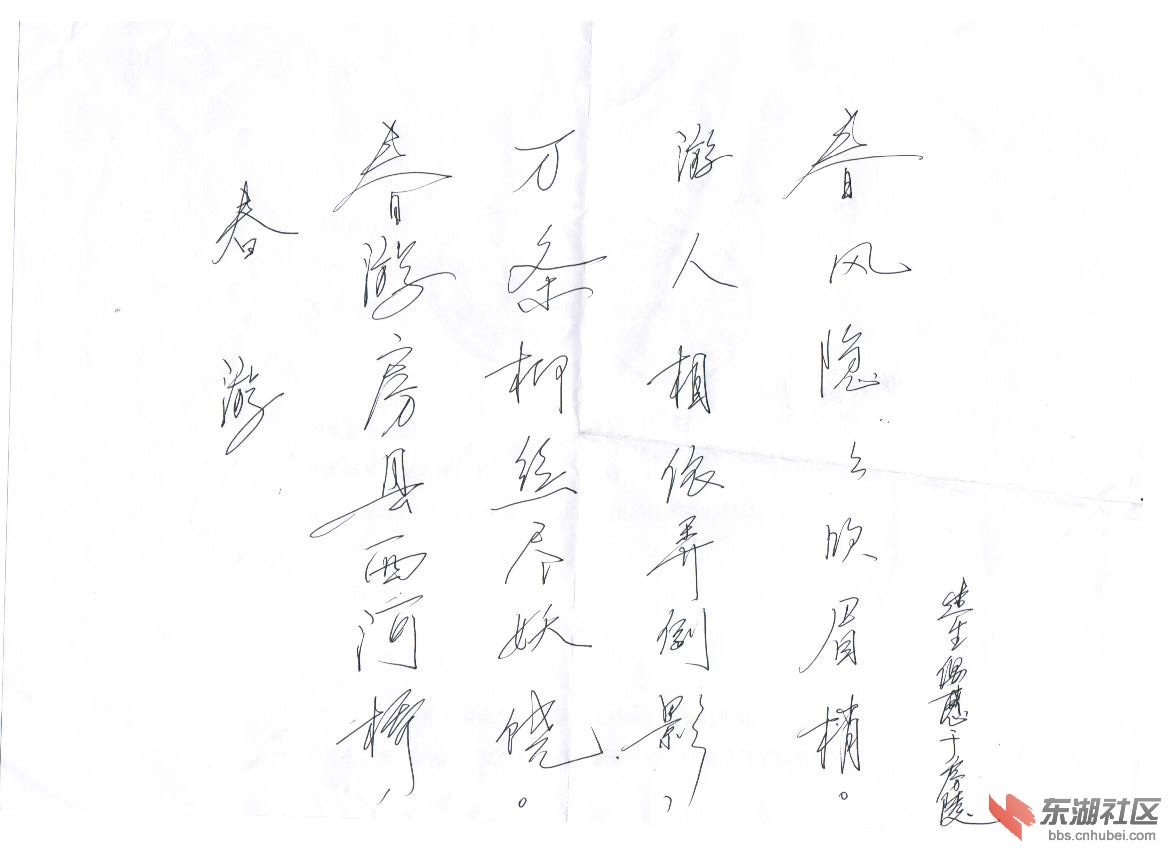 春游
春游房县西河桥，
万条柳丝尽妖饶。
游人相依弄倒影，
春风隐々吹眉梢。
生偶感于房陵
东湖社区
bbs.cnhubei.com